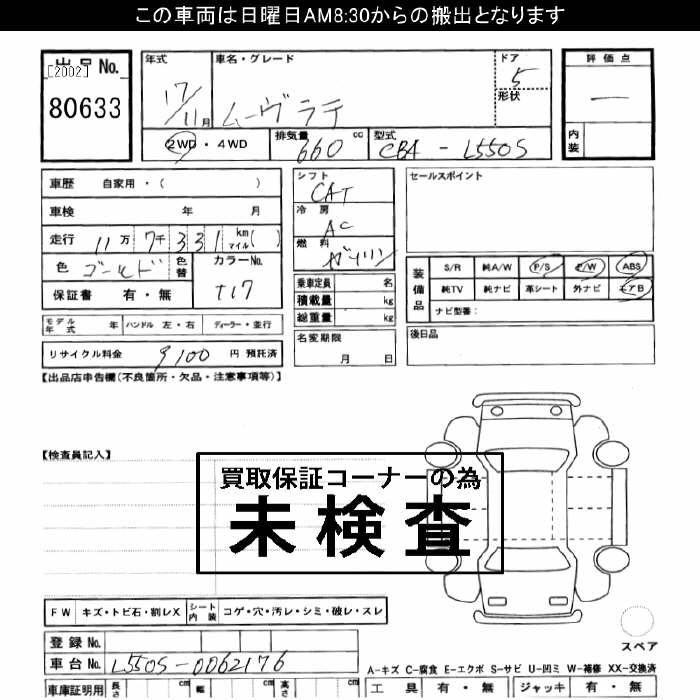 この車両は日曜日AM8:30からの搬出となります
出品No.
[2002]
80633
年式
17/11月
車名・グレード
ムーヴラテ
ドア
5
形状
評価点
—
内装
2WD・4WD
排気量
660 cc
型式
CBA - L550S
車歴 自家用・( )
車検 年 月
走行 11万 7千 331 km マイル( )
色 ゴールド
色替
カラーNo.
T17
保証書 有・無
シフト
CAT
冷房
AC
燃料
ガソリン
乗車定員 名
積載量 kg
総重量 kg
セールスポイント
装備品
S/R 純A/W P/S P/W ABS
純TV 純ナビ 革シート 外ナビ エアB
ナビ型番:
モデル年式 年 ハンドル 左・右 ディーラー・並行
名変期限
月 日
後日品
リサイクル料金 9100 円 預託済
【出品店申告欄(不良箇所・欠品・注意事項等)】
【検査員記入】
買取保証コーナーの為
未検査
FW キズ・トビ石・割レX シート内装 コゲ・穴・汚レ・シミ・破レ・スレ
登録No.
車台No. L550S-0062176
スペア
A-キズ C-腐食 E-エクボ S-サビ U-凹ミ W-補修 XX-交換済
車庫証明用 長さ cm 幅 cm 高さ cm
工具 有・無 ジャッキ 有・無